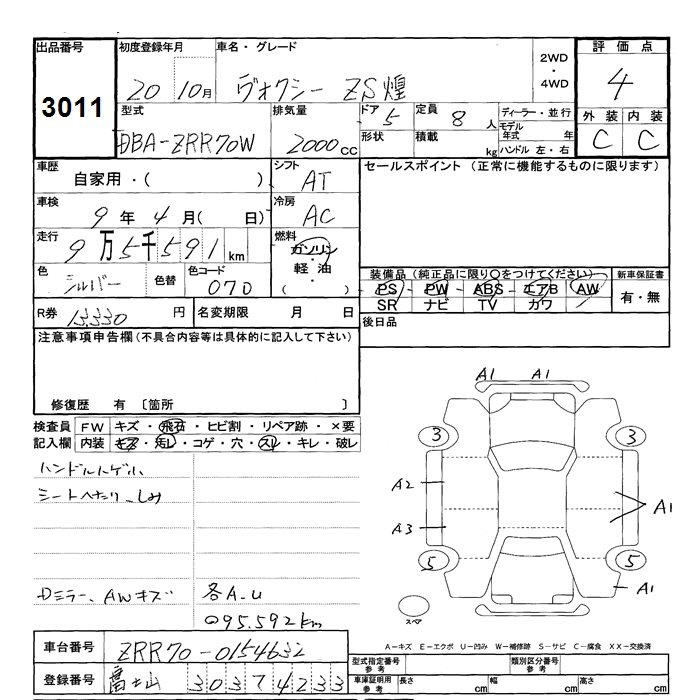 出品番号
3011
初度登録年月
20 10月
車名・グレード
ヴォクシー ZS煌
2WD
・
4WD
評価点
4
型式
DBA-ZRR70W
排気量
2000cc
ドア 5
形状
定員 8人
積載 kg
ディーラー・並行
モデル年式 年
ハンドル 左・右
外装 内装
C C
車歴
自家用・( )
シフト
AT
セールスポイント (正常に機能するものに限ります)
車検
9年 4月( 日)
冷房
AC
走行
9万5千591km
燃料
ガソリン
・
軽油
・
( )
色
シルバー
色替
色コード
070
装備品 (純正品に限り○をつけてください)
PS・PW・ABS・エアB・AW
SR ナビ TV カワ
新車保証書
有・無
R券 13330円
名変期限 月 日
後日品
注意事項申告欄(不具合内容等は具体的に記入して下さい)
修復歴 有 〔箇所 〕
検査員記入欄
FW キズ・飛石・ヒビ割・リペア跡・×要
内装 キズ・汚レ・コゲ・穴・スレ・キレ・破レ
ハンドルハゲル
シートへたり、しみ
Dミラー、AWキズ
各A.U
095.592km
A1 A1
3 3
A2
A3
A1
5 5
A1
スペア
A-キズ E-エクボ U-凹み W-補修跡 S-サビ C-腐食 XX-交換済
車台番号
ZRR70-0154632
登録番号
富士山 303 7 4233
型式指定番号
参考
類別区分番号
参考
車庫証明用
参考
長さ cm
幅 cm
高さ cm